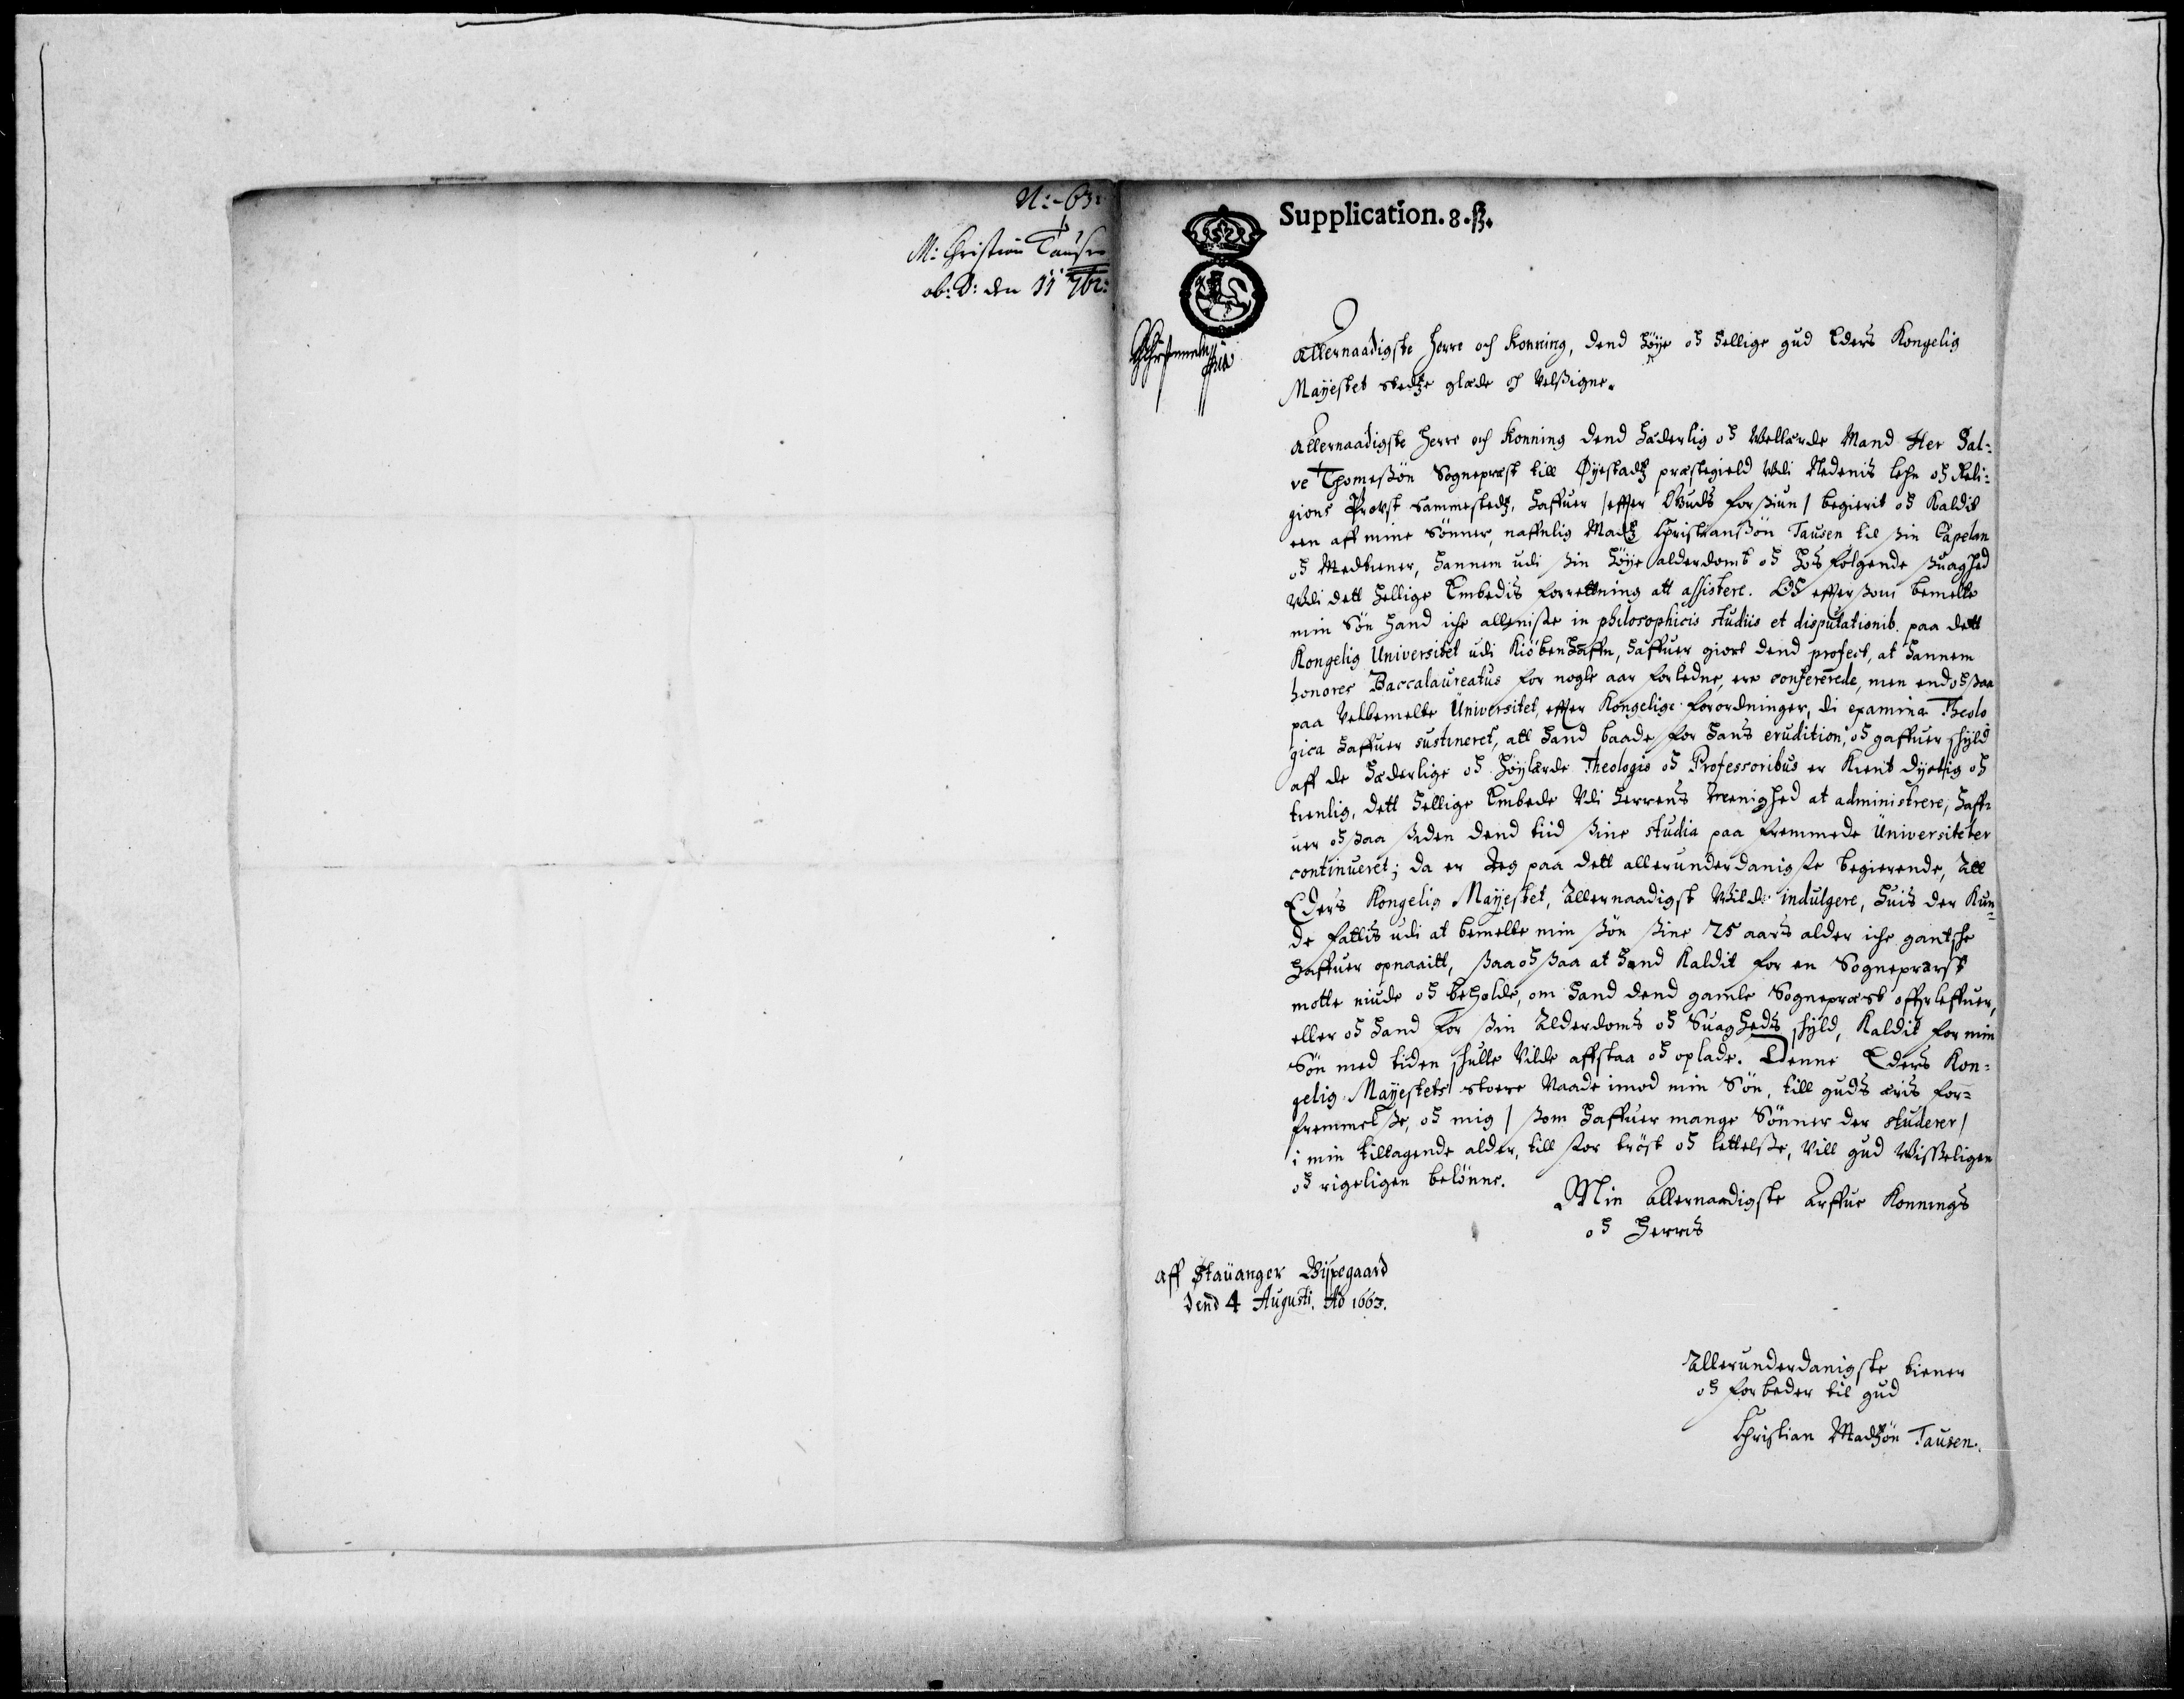 N:-63:
M: Christian Tausen
ob: d: den 11 7br:
Supplication. 8.ß.
Allernaadigste Herre och Konning, dend høye oc hellige gud Eders Kongelig
Mayestet stedtze glæde oc velßigne.
Allernaadigste Herre och Konning dend hæderlig oc Vellærde Mand Her Sal-
ve Thomesßøn Sognepræst till Øyestadtz præstegield Vdi Nedenis Lehn oc Reli-
gions Provst sammestedtz, haffuer /effter Guds forßiun/ begierit oc Kaldit
een aff mine Sønner, naffnlig Madtz Christianßøn Tausen til ßin Capelan
oc Medtiener, hannem udi ßin høye alderdomb oc hosfølgende suaghed
Vdi dett hellige Embedis forrettning att assistere. Oc effterßom bemelte
min Søn hand iche allenisste in philosophicis studiis et disputationib. paa dett
Kongelig Universitet udi Kiøbenhaffn, haffuer giort dend profect, at hannem
honores Baccalaureatus for nogle aar forledne, ere confererede, men endocßaa
paa velbemelte Universitet, effter Kongelige forordninger, di examina Theolo
gica haffuer sustineret, att hand baade for hans erudition, oc gaffuer schyld
aff de hæderlige oc høylærde Theologis oc Professoribus er Kient dyctig oc
tienlig, dett hellige Embede Vdi Herrens Meenighed at administrere, haff-
uer ocßaa ßiden dend tiid ßine studia paa fremmede Universiteter
continueret; da er Jeg paa dett allerunderdanigste begierende, Att
Eders Kongelig Mayestet, Allernaadigst Vilde indulgere, huis der Kun-
de fattis udi at bemelte min ßøn ßine 25 aars alder iche gantsche
haffuer opnaaitt, ßaa ocßaa at hand Kaldit for en Sognepræst
motte niude oc beholde, om hand dend gamle Sognepræst offerleffuer,
eller oc hand for ßin Alderdoms oc Suagheds schyld, Kaldit for min
Søn med tiden schulle Vilde affstaa oc oplade. Denne Eders Kon-
gelig Mayestets store Naade imod min Søn, till guds æris for-
fremmelße, oc mig / ßom haffuer mange Sønner der studerer /
i min tiltagende alder, till stor trøst oc lettelße, Vill gud Visseligen
oc rigeligen belønne.
Min Allernaadigste Arffue Konnings
oc Herris
Aff Stauanger Bispegaard
Dend 4 Augusti. Ao 1663.
Allerunderdanigste tiener
oc forbeder til gud
Christian Madtzøn Tausen.